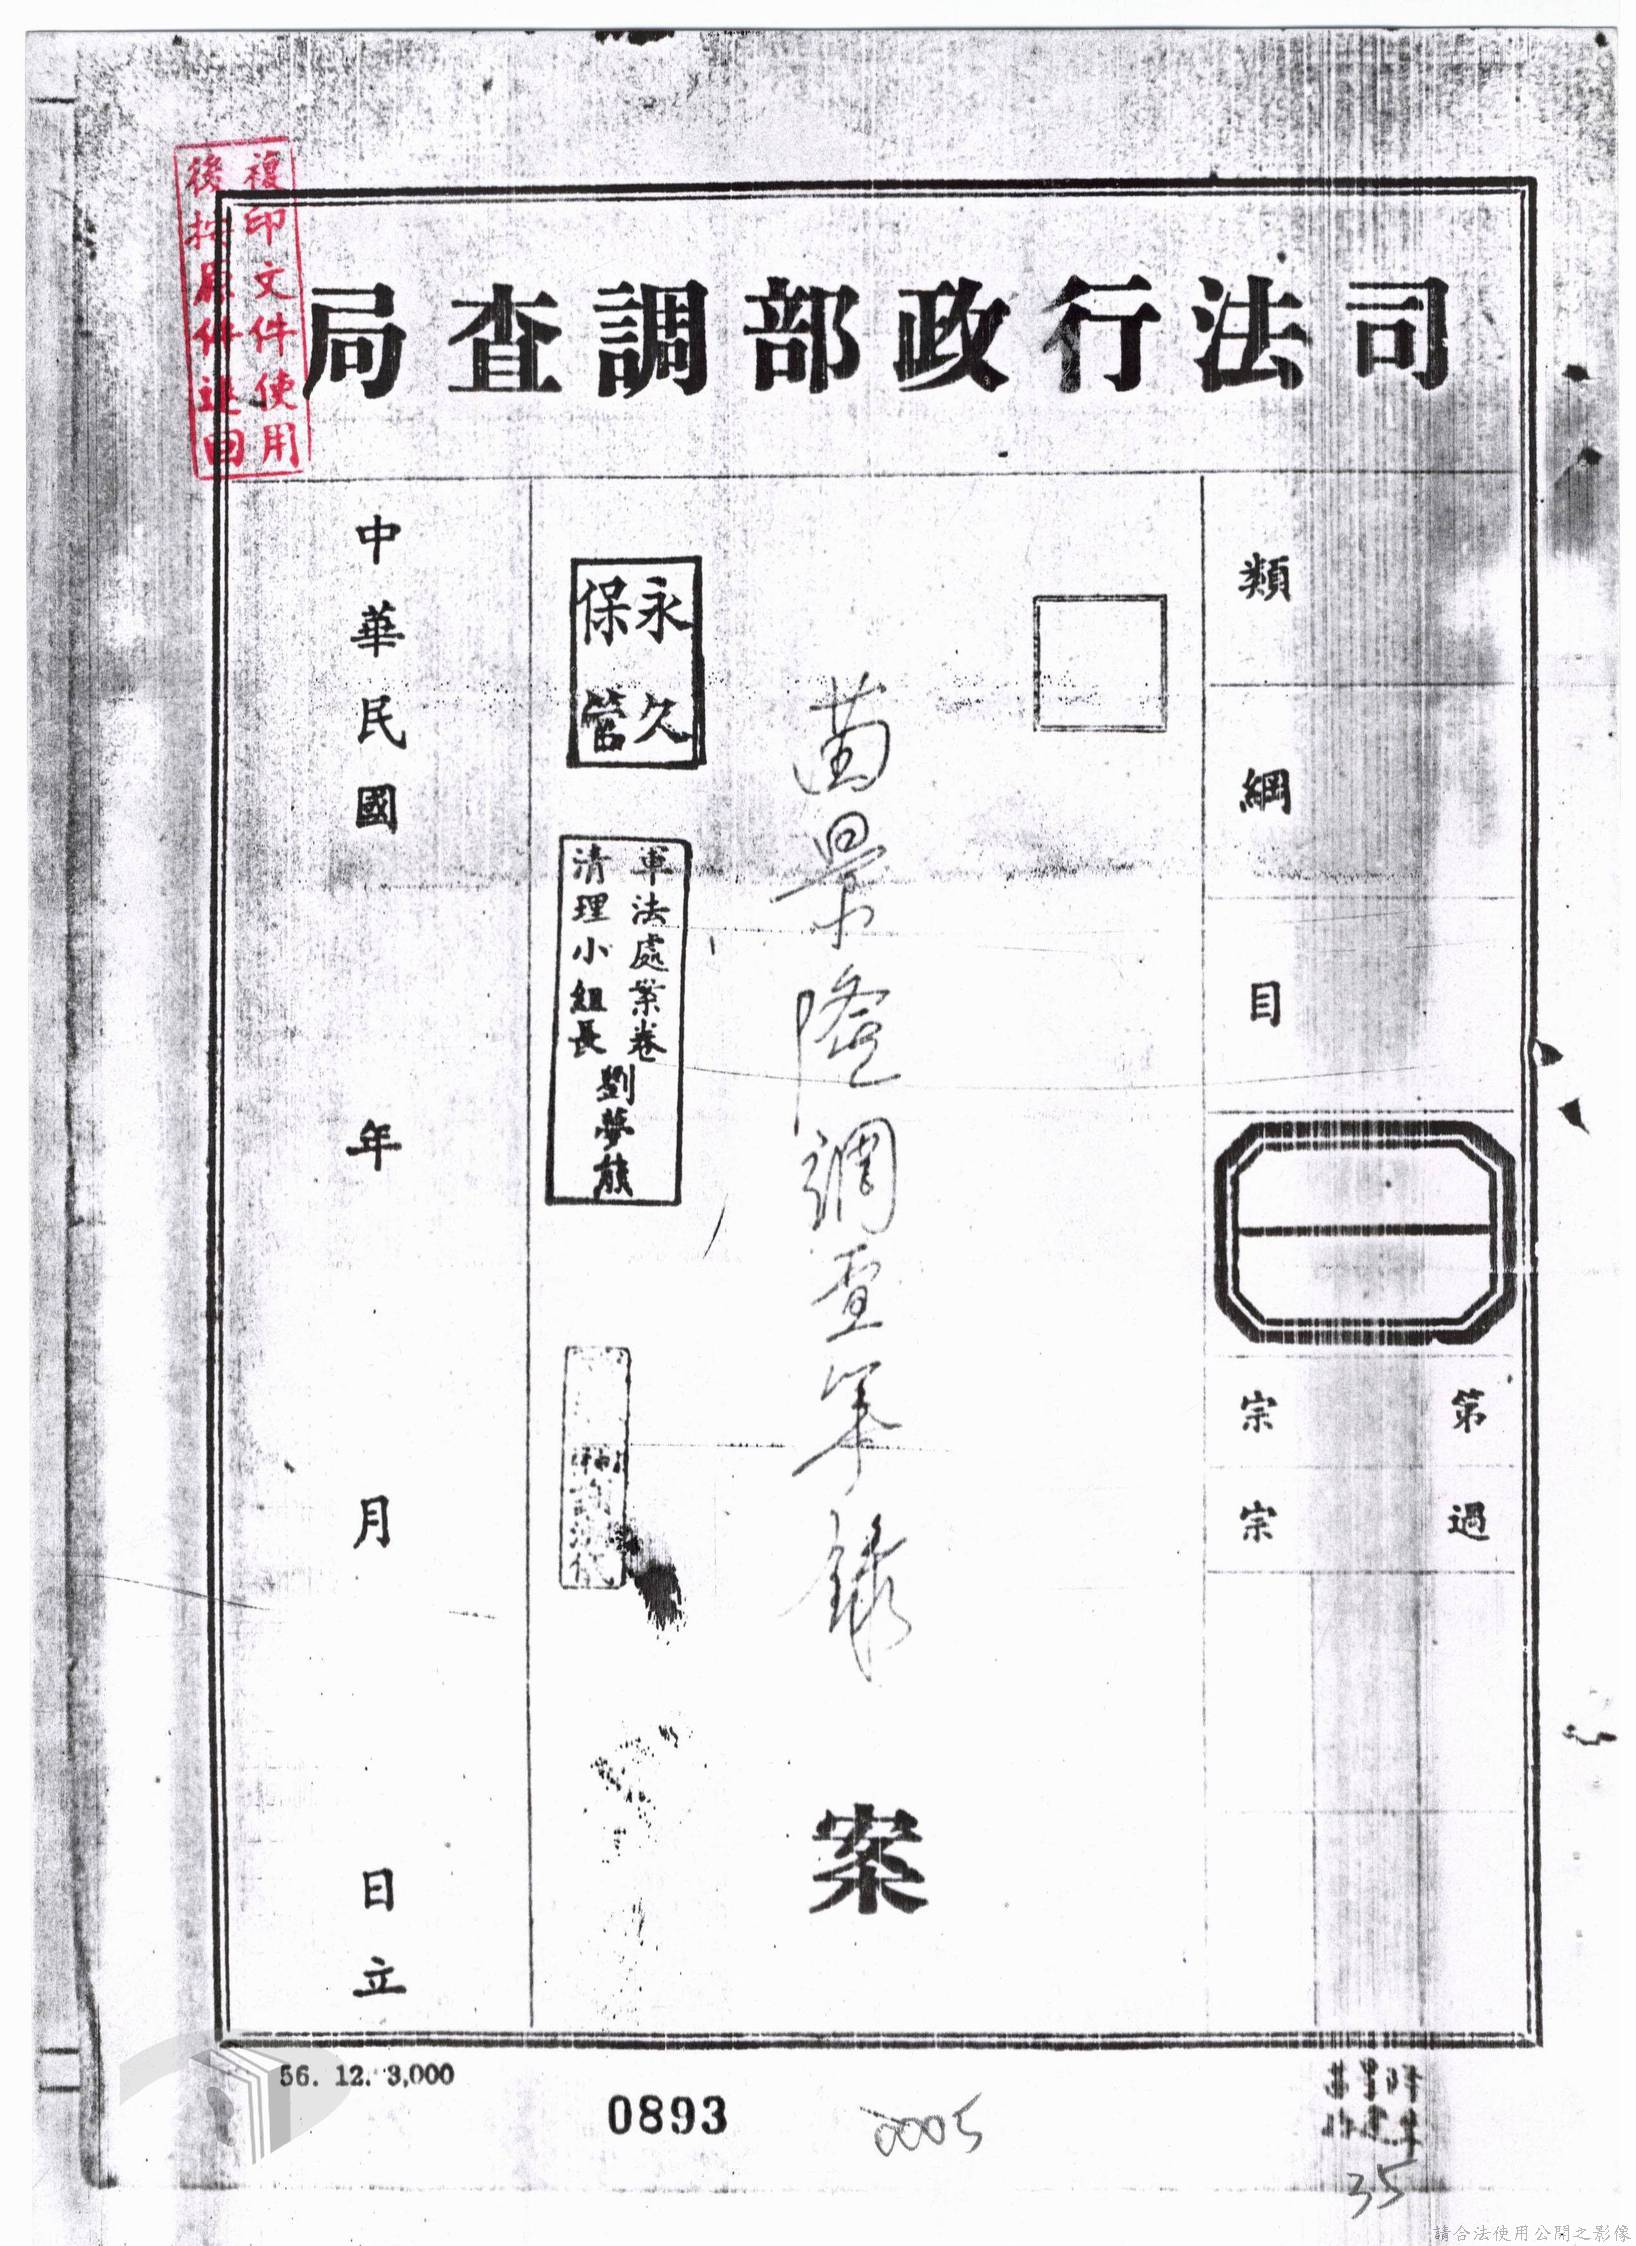 複印文件使用
後按原件退回
司法行政部調查局
類
綱
目
第 宗
過 宗
苗景隆調查筆錄
案
永久
保管
軍法處案卷
清理小組長
劉夢熊
中華民國 年 月 日立
56. 12. 3,000
0893
0005
35
請合法使用公開之影像